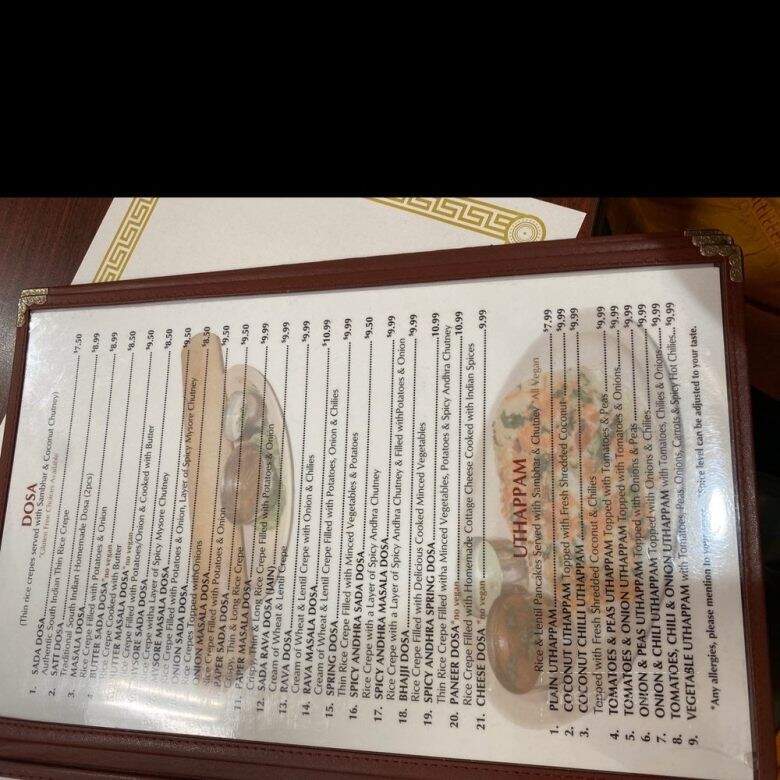 DOSA
(Thin rice crepes served with Sambhar & Coconut Chutney)
*Gluten Free Choices Available
1. SADA DOSA $7.50
Authentic South Indian Thin Rice Crepe
2. SATT DOSA $8.99
Traditional South Indian Homemade Dosa (2pcs)
3. MASALA DOSA $8.99
Rice Crepe Filled with Potatoes & Onion
4. BUTTER SADA DOSA *no vegan $8.50
Crepe Cooked with Butter
BUTTER MASALA DOSA *no vegan $9.50
Crepe Filled with Potatoes/Onion & Cooked with Butter
MYSORE SADA DOSA $8.50
Crepe with a Layer of Spicy Mysore Chutney
MYSORE MASALA DOSA $9.50
Crepe Filled with Potatoes & Onion, Layer of Spicy Mysore Chutney
ONION SADA DOSA $8.50
Rice Crepes Topped with Onions
ONION MASALA DOSA $9.50
Rice Crepe Filled with Potatoes & Onion
PAPER SADA DOSA $9.50
Crispy, Thin & Long Rice Crepe
11. PAPER MASALA DOSA $9.99
Crispy, Thin & Long Rice Crepe Filled with Potatoes & Onion
12. SADA RAVA DOSA (JAIN) $9.99
Cream of Wheat & Lentil Crepe
13. RAVA DOSA $9.99
Cream of Wheat & Lentil Crepe with Onion & Chilies
14. RAVA MASALA DOSA $10.99
Cream of Wheat & Lentil Crepe Filled with Potatoes, Onion & Chilies
15. SPRING DOSA $9.99
Thin Rice Crepe Filled with Minced Vegetables & Potatoes
16. SPICY ANDHRA SADA DOSA $9.50
Rice Crepe with a Layer of Spicy Andhra Chutney
17. SPICY ANDHRA MASALA DOSA $9.99
Rice Crepe with a Layer of Spicy Andhra Chutney & Filled withPotatoes & Onion
18. BHAJJI DOSA $9.99
Rice Crepe Filled with Delicious Cooked Minced Vegetables
19. SPICY ANDHRA SPRING DOSA 10.99
Thin Rice Crepe Filled witha Minced Vegetables, Potatoes & Spicy Andhra Chutney
20. PANEER DOSA *no vegan 10.99
Rice Crepe Filled with Homemade Cottage Cheese Cooked with Indian Spices
21. CHEESE DOSA *no vegan 9.99
UTHAPPAM
Rice & Lentil Pancakes Served with Sambhar & Chutney *All Vegan
1. PLAIN UTHAPPAM $7.99
2. COCONUT UTHAPPAM Topped with Fresh Shredded Coconut $9.99
3. COCONUT CHILLI UTHAPPAM $9.99
Topped with Fresh Shredded Coconut & Chilies
4. TOMATOES & PEAS UTHAPPAM Topped with Tomatoes & Peas $9.99
5. TOMATOES & ONION UTHAPPAM Topped with Tomatoes & Onions $9.99
6. ONION & PEAS UTHAPPAM Topped with Onions & Peas $9.99
7. ONION & CHILI UTHAPPAM Topped with Onions & Chilies $9.99
8. TOMATOES, CHILI & ONION UTHAPPAM with Tomatoes, Chilies & Onions $9.99
9. VEGETABLE UTHAPPAM with Tomatoes, Peas, Onions, Carrots & Spicy Hot Chilies... $9.99
*Any allergies, please mention to your spice level can be adjusted to your taste.